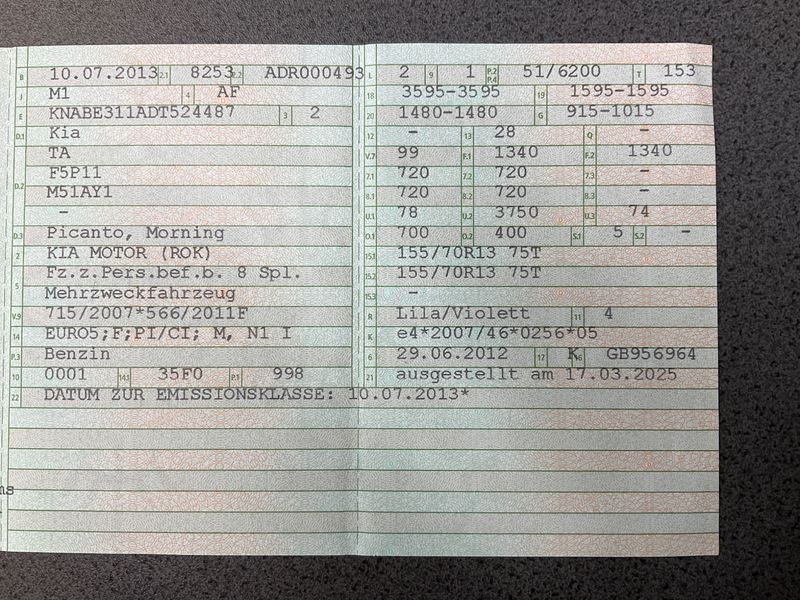 B 10.07.2013 2.1 8253 2.2 ADR000493
J M1 4 AF
E KNABE311ADT524487 3 2
D.1 Kia
TA
F5P11
D.2 M51AY1
-
D.3 Picanto, Morning
2 KIA MOTOR (ROK)
Fz.z.Pers.bef.b. 8 Spl.
5 Mehrzweckfahrzeug
V.9 715/2007*566/2011F
14 EURO5;F;PI/CI; M, N1 I
P.3 Benzin
10 0001 14.1 35F0 P.1 998
22 DATUM ZUR EMISSIONSKLASSE: 10.07.2013*
ms
L 2 9 1 P.2 P.4 51/6200 T 153
18 3595-3595 19 1595-1595
20 1480-1480 G 915-1015
12 - 13 28 Q -
V.7 99 F.1 1340 F.2 1340
7.1 720 7.2 720 7.3 -
8.1 720 8.2 720 8.3 -
U.1 78 U.2 3750 U.3 74
O.1 700 O.2 400 S.1 5 S.2 -
15.1 155/70R13 75T
15.2 155/70R13 75T
15.3 -
R Lila/Violett 11 4
K e4*2007/46*0256*05
6 29.06.2012 17 K 16 GB956964
21 ausgestellt am 17.03.2025